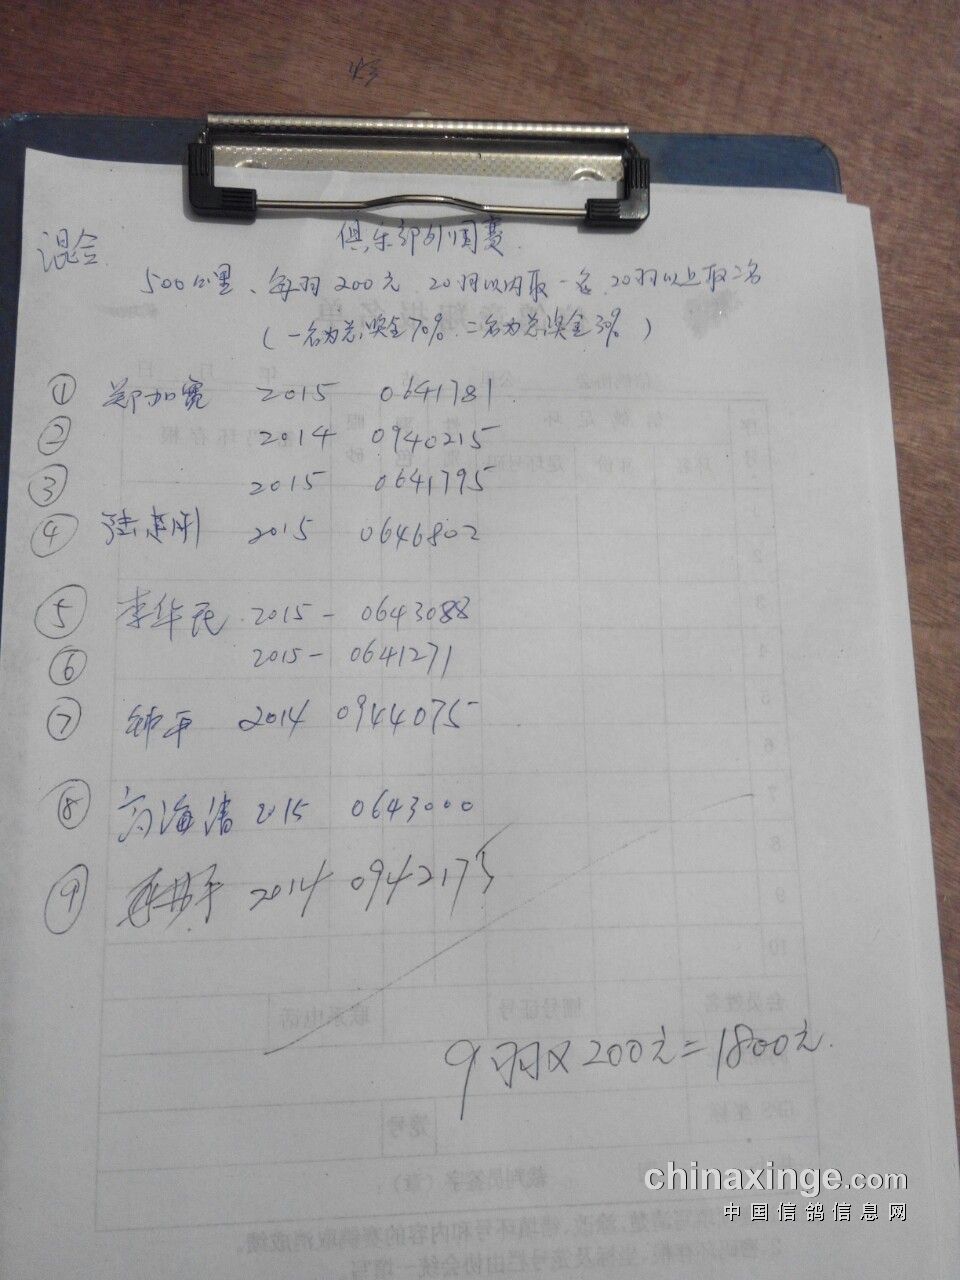 俱乐部外围赛
混合
500公里、每羽200元 20羽以内取一名、20羽以上取二名
(一名为总奖金70% 二名为总奖金30%)
① 郑加宽 2015 0641781
② 2014 0940215
③ 2015 0641795
④ 陆建刚 2015 0646802
⑤ 李华民 2015- 0643088
⑥ 2015- 0641271
⑦ 钟平 2014 0944075
⑧ 高海清 2015 0643000
⑨ 2014 0942175
9羽×200元=1800元.
chinaxinge.com
中国信鸽信息网